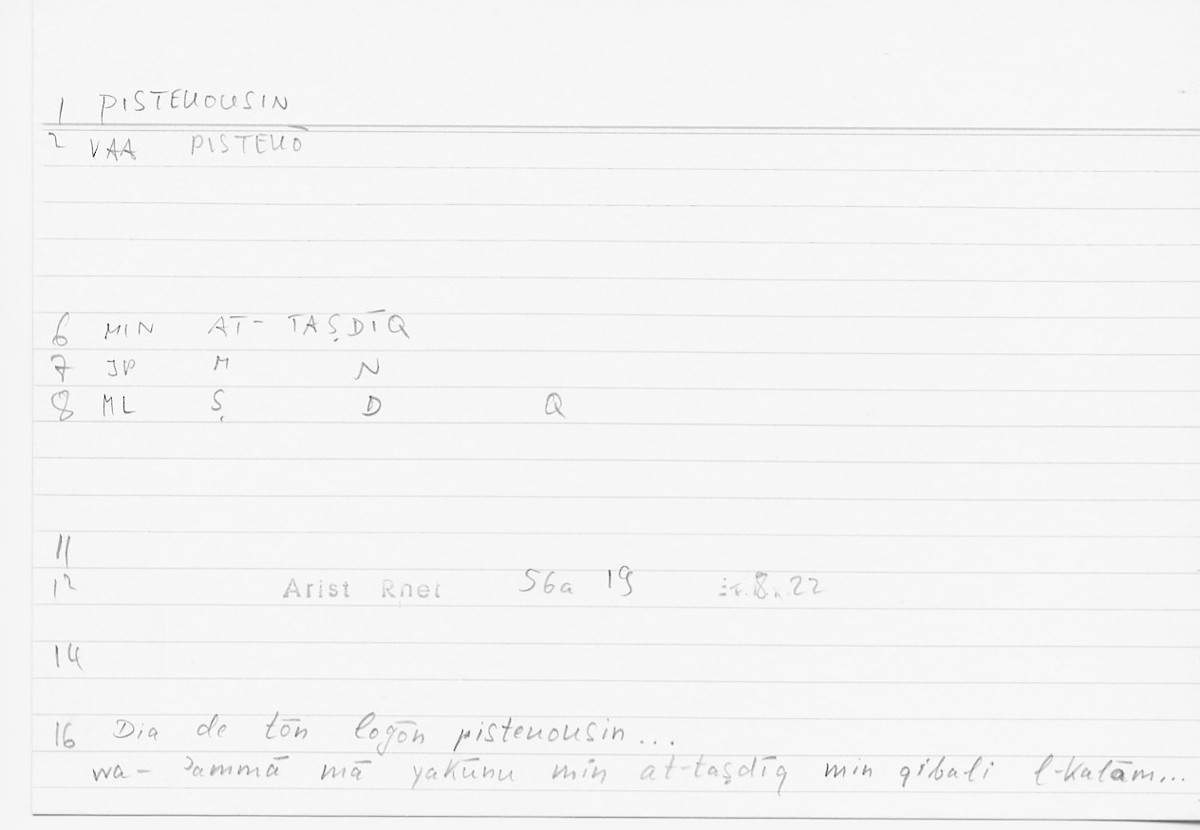 1 PISTEUOUSIN
2 VAA PISTEUŌ
6 MIN AT- TAṢDĪQ
7 JP M N
8 ML Ṣ D Q
11
12 Arist Rhet 56a 19 8, 22
14
16 Dia de tōn logōn pisteuousin...
wa- ʾammā mā yakūnu min at-taṣdīq min qibali l-kalām...